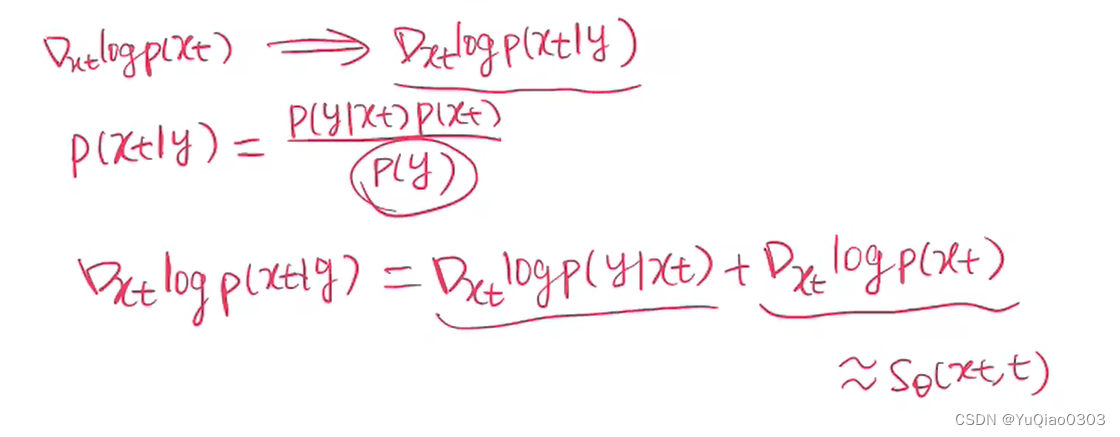 ∇xt log p(xt) ⟹ ∇xt log p(xt|y)
p(xt|y) = p(y|xt) p(xt) / p(y)
∇xt log p(xt|y) = ∇xt log p(y|xt) + ∇xt log p(xt)
≈ sθ(xt, t)
CSDN @YuQiao0303